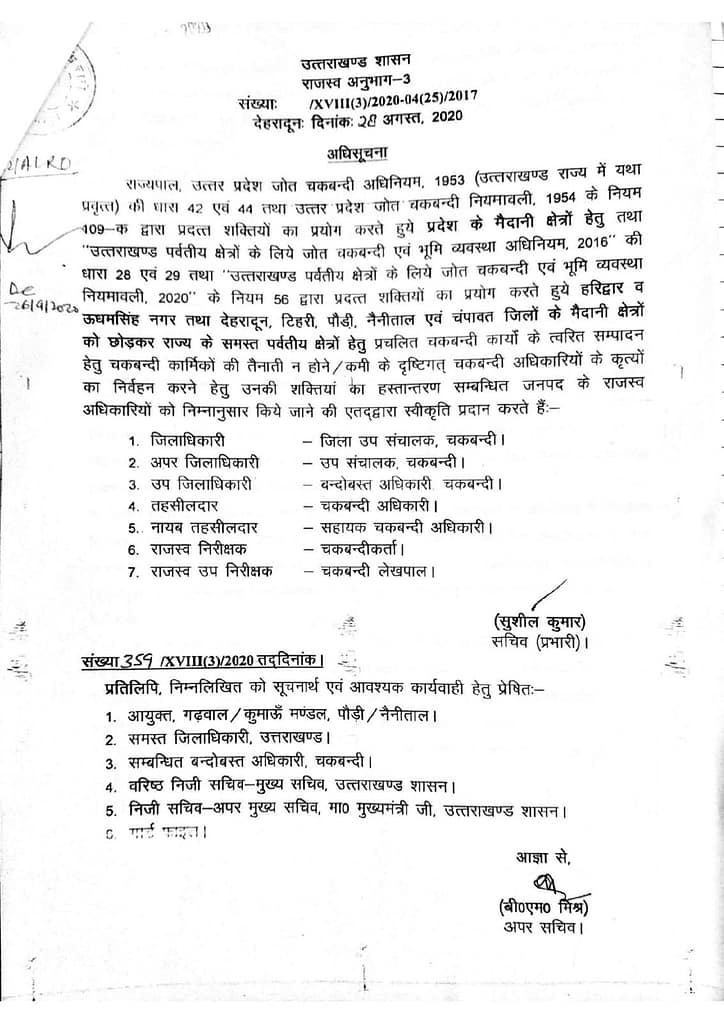 उत्तराखण्ड शासन
राजस्व अनुभाग–3
संख्याः /XVIII(3)/2020-04(25)/2017
देहरादूनः दिनांकः 28 अगस्त, 2020
अधिसूचना
राज्यपाल, उत्तर प्रदेश जोत चकबन्दी अधिनियम, 1953 (उत्तराखण्ड राज्य में यथा
प्रवृत्त) की धारा 42 एवं 44 तथा उत्तर प्रदेश जोत चकबन्दी नियमावली, 1954 के नियम
109–क द्वारा प्रदत्त शक्तियों का प्रयोग करते हुये प्रदेश के मैदानी क्षेत्रों हेतु तथा
"उत्तराखण्ड पर्वतीय क्षेत्रों के लिये जोत चकबन्दी एवं भूमि व्यवस्था अधिनियम, 2016" की
धारा 28 एवं 29 तथा "उत्तराखण्ड पर्वतीय क्षेत्रों के लिये जोत चकबन्दी एवं भूमि व्यवस्था
नियमावली, 2020" के नियम 56 द्वारा प्रदत्त शक्तियों का प्रयोग करते हुये हरिद्वार व
ऊधमसिंह नगर तथा देहरादून, टिहरी, पौड़ी, नैनीताल एवं चंपावत जिलों के मैदानी क्षेत्रों
को छोड़कर राज्य के समस्त पर्वतीय क्षेत्रों हेतु प्रचलित चकबन्दी कार्यो के त्वरित सम्पादन
हेतु चकबन्दी कार्मिकों की तैनाती न होने/कमी के दृष्टिगत् चकबन्दी अधिकारियों के कृत्यों
का निर्वहन करने हेतु उनकी शक्तियां का हस्तान्तरण सम्बन्धित जनपद के राजस्व
अधिकारियों को निम्नानुसार किये जाने की एतद्द्वारा स्वीकृति प्रदान करते हैंः–
1. जिलाधिकारी – जिला उप संचालक, चकबन्दी।
2. अपर जिलाधिकारी – उप संचालक, चकबन्दी।
3. उप जिलाधिकारी – बन्दोबस्त अधिकारी चकबन्दी।
4. तहसीलदार – चकबन्दी अधिकारी।
5. नायब तहसीलदार – सहायक चकबन्दी अधिकारी।
6. राजस्व निरीक्षक – चकबन्दीकर्ता।
7. राजस्व उप निरीक्षक – चकबन्दी लेखपाल।
(सुशील कुमार)
सचिव (प्रभारी)।
संख्या 359 /XVIII(3)/2020 तद्दिनांक।
प्रतिलिपि, निम्नलिखित को सूचनार्थ एवं आवश्यक कार्यवाही हेतु प्रेषितः–
1. आयुक्त, गढ़वाल/कुमाऊँ मण्डल, पौड़ी/नैनीताल।
2. समस्त जिलाधिकारी, उत्तराखण्ड।
3. सम्बन्धित बन्दोबस्त अधिकारी, चकबन्दी।
4. वरिष्ठ निजी सचिव–मुख्य सचिव, उत्तराखण्ड शासन।
5. निजी सचिव–अपर मुख्य सचिव, मा0 मुख्यमंत्री जी, उत्तराखण्ड शासन।
6. गार्ड फाइल।
आज्ञा से,
(बी0एम0 मिश्र)
अपर सचिव।